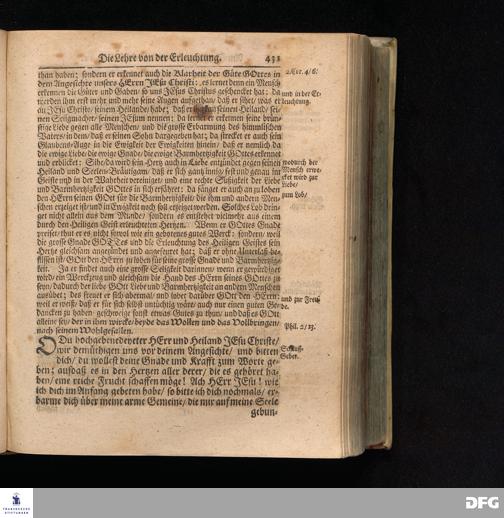 Die Lehre von der Erleuchtung. 431
than haben; sondern er erkennet auch die Klarheit der Güte GOttes in
dem Angesichte unsers HErrn JEsu Christi; es lernet denn ein Mensch
erkennen die Güter und Gaben/ so uns JEsus Christus geschencket hat; da
werden ihm erst mehr und mehr seine Augen aufgethan/ daß er sihet/ was er
an JEsu Christo/ seinem Heilande/ habe; daß er seinen Heiland/ sei-
nen Seligmacher/ seinen JEsum nennen; da lernet er erkennen seine brün-
stige Liebe gegen alle Menschen/ und die grosse Erbarmung des himmlischen
Vaters/ in dem/ daß er seinen Sohn dargegeben hat; da strecket er auch sein
Glaubens-Auge in die Ewigkeit der Ewigkeiten hinein/ daß er nemlich da
die ewige Liebe/ die ewige Gnade/ die ewige Barmhertzigkeit GOttes erkennet
und erblicket: Sihe da wird sein Hertz auch in Liebe entzündet gegen seinen
Heiland und Seelen-Bräutigam/ daß er sich gantz innig/ fest und genau im
Geiste und in der Wahrheit vereiniget/ und eine rechte Süßigkeit der Liebe
und Barmhertzigkeit GOttes in sich erfähret: da fänget er auch an zu loben
den HErrn seinen GOtt für die Barmhertzigkeit/ die ihm und andern Men-
schen erzeiget ist/ und in Ewigkeit noch soll erzeiget werden. Solches Lob drin-
get nicht allein aus dem Munde/ sondern es entstehet vielmehr aus einem
durch den Heiligen Geist erleuchteten Hertzen. Wenn er GOttes Gnade
preiset/ thut er es nicht sowol wie ein gebotenes gutes Werck; sondern/ weil
die grosse Gnade GOTTes und die Erleuchtung des Heiligen Geistes sein
Hertz gleichsam angezündet und angefeuret hat; daß er ohne Unterlaß be-
flissen ist/ GOtt den HErrn zu loben für seine grosse Gnade und Barmhertzig-
keit. Ja er findet auch eine grosse Seligkeit darinnen/ wenn er gewürdiget
wird/ ein Werckzeug und gleichsam die Hand des HErrn seines GOttes zu
seyn/ dadurch der liebe GOtt Liebe und Barmhertzigkeit an andern Menschen
ausübet; des freuet er sich abermal/ und lobet darüber GOtt den HErrn;
weil er weiß/ daß er für sich selbst untüchtig wäre/ auch nur einen guten Ge-
dancken zu haben/ geschweige sonst etwas Gutes zu thun/ und daß es GOtt
alleine sey/ der in ihm wircke/ beyde das Wollen und das Vollbringen/
nach seinem Wohlgefallen.
O Du hochgebenedeyeter HErr und Heiland JEsu Christe/
wir demüthigen uns vor deinem Angesichte/ und bitten
dich/ du wollest deine Gnade und Krafft zum Worte ge-
ben; aufdaß es in den Hertzen aller derer/ die es gehöret ha-
ben/ eine reiche Frucht schaffen möge! Ach HErr JEsu! wie
ich dich im Anfang gebeten habe/ so bitte ich dich nochmals/ er-
barme dich über meine arme Gemeine/ die mir auf meine Seele
gebun-
2. Cor. 4/6.
und in der Er-
leuchtung.
wodurch der
Mensch erwe-
cket wird zur
Liebe/
zum Lob/
und zur Freu-
de.
Phil. 2/13.
Schluß-
Gebet.
FRANCKESCHE
STIFTUNGEN
DFG